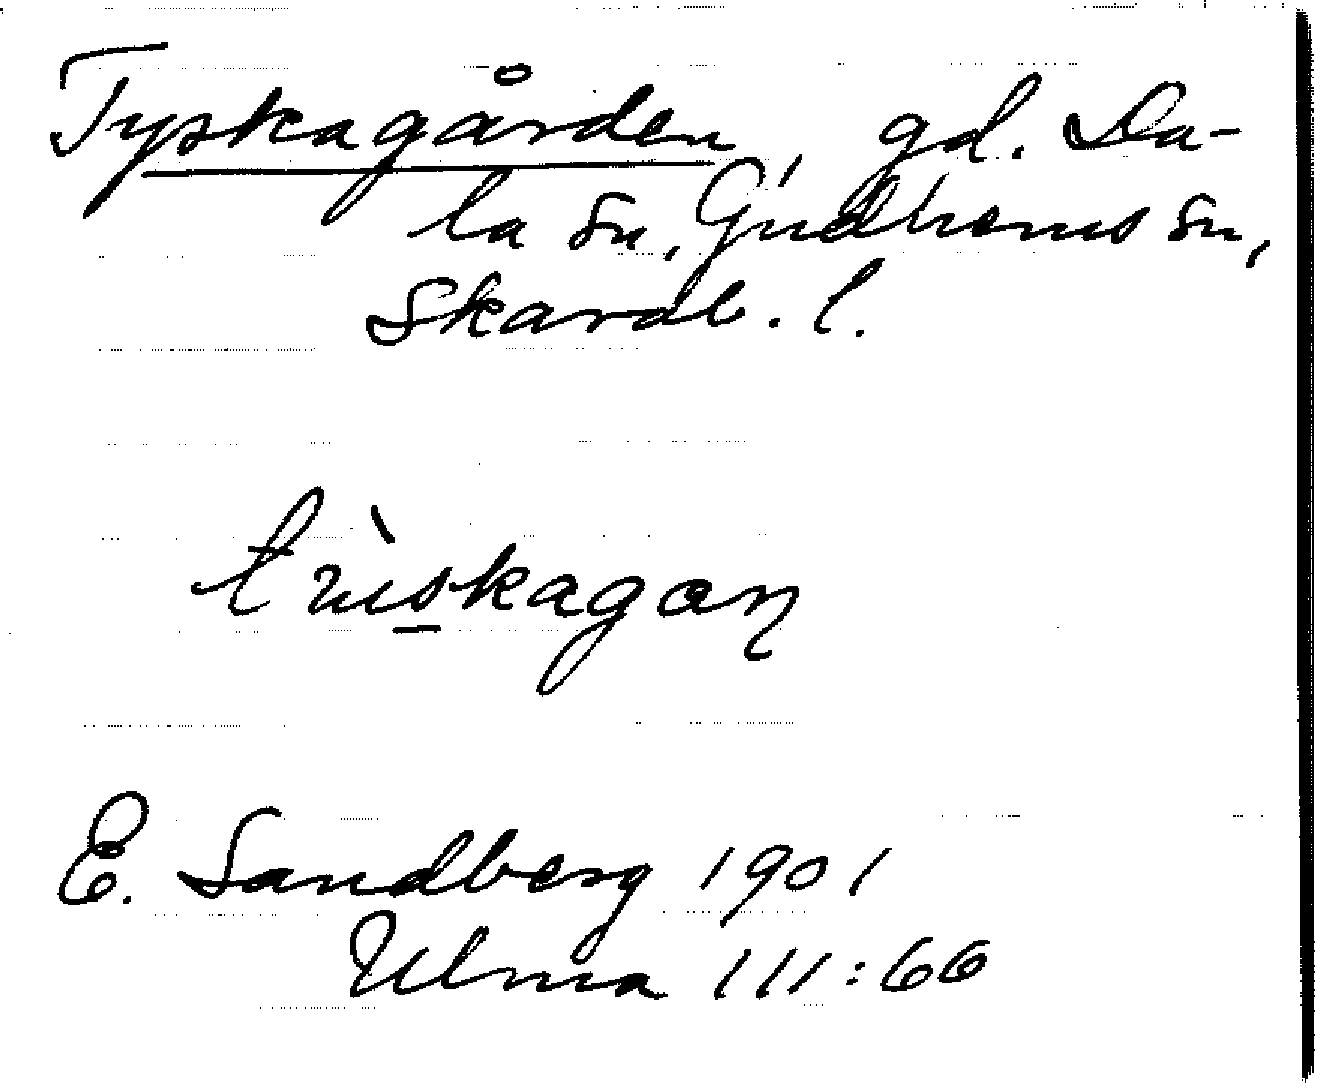 Tyskagården, gd. Da-
la sn, Gudhems sn,
Skarab. l.
E. Sandberg 1901
Ulma 111:66